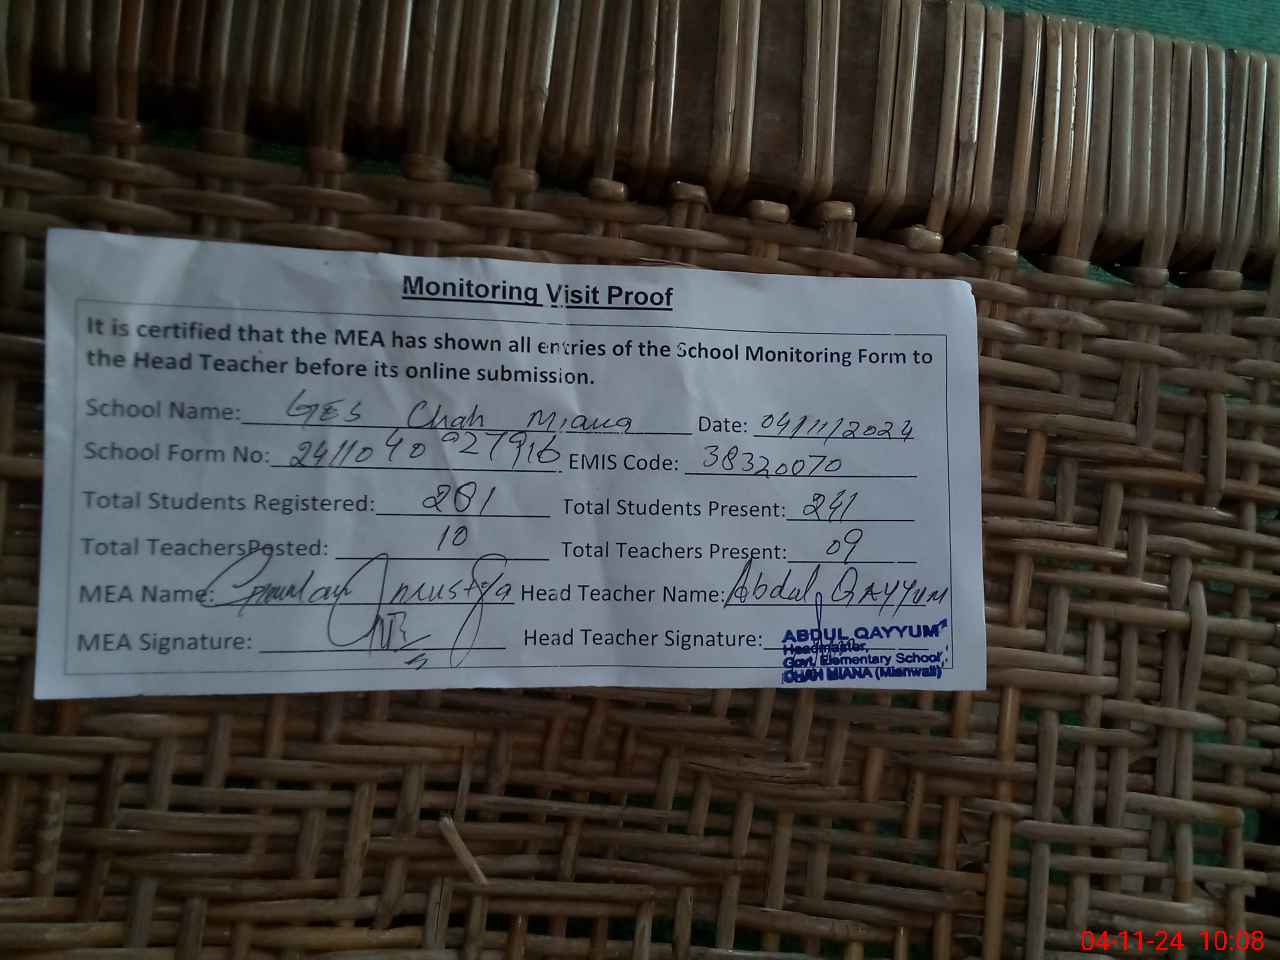 Monitoring Visit Proof
It is certified that the MEA has shown all entries of the School Monitoring Form to
the Head Teacher before its online submission.
School Name: GES Chah Miana Date: 04/11/2024
School Form No: 2411040927916 EMIS Code: 38320070
Total Students Registered: 281 Total Students Present: 241
Total TeachersPosted: 10 Total Teachers Present: 09
MEA Name: Mustafa Head Teacher Name: Abdul QAYYUM
MEA Signature: Head Teacher Signature:
ABDUL QAYYUM
Headmaster,
Govt. Elementary School,
CHAH MIANA (Mianwali)
04-11-24 10:08